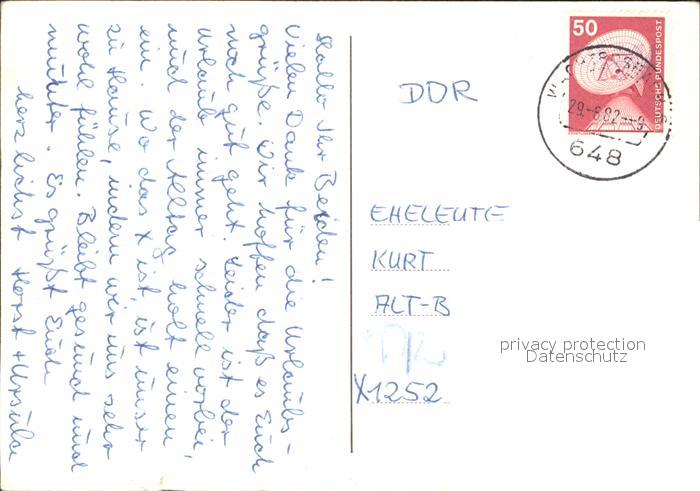 Hallo Ihr Beiden!
Vielen Dank für die Urlaubs-
grüße. Wir hoffen daß es Euch
noch gut geht. Leider ist der
Urlaub immer schnell vorbei,
und der Alltag holt einen
ein. Wo das X ist, ist unser
zu Hause, indem wir uns sehr
wohl fühlen. Bleibt gesund und
munter. Es grüßt Euch
herzlichst Horst + Ursula
50
DEUTSCHE BUNDESPOST
29.-6.82
648
DDR
EHELEUTE
KURT
ALT-B
X1252
privacy protection
Datenschutz